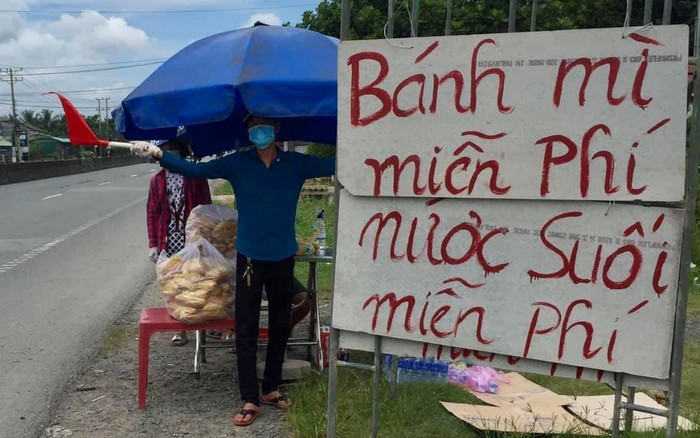 Bánh mì
miễn Phí
nước Suối
miễn Phí